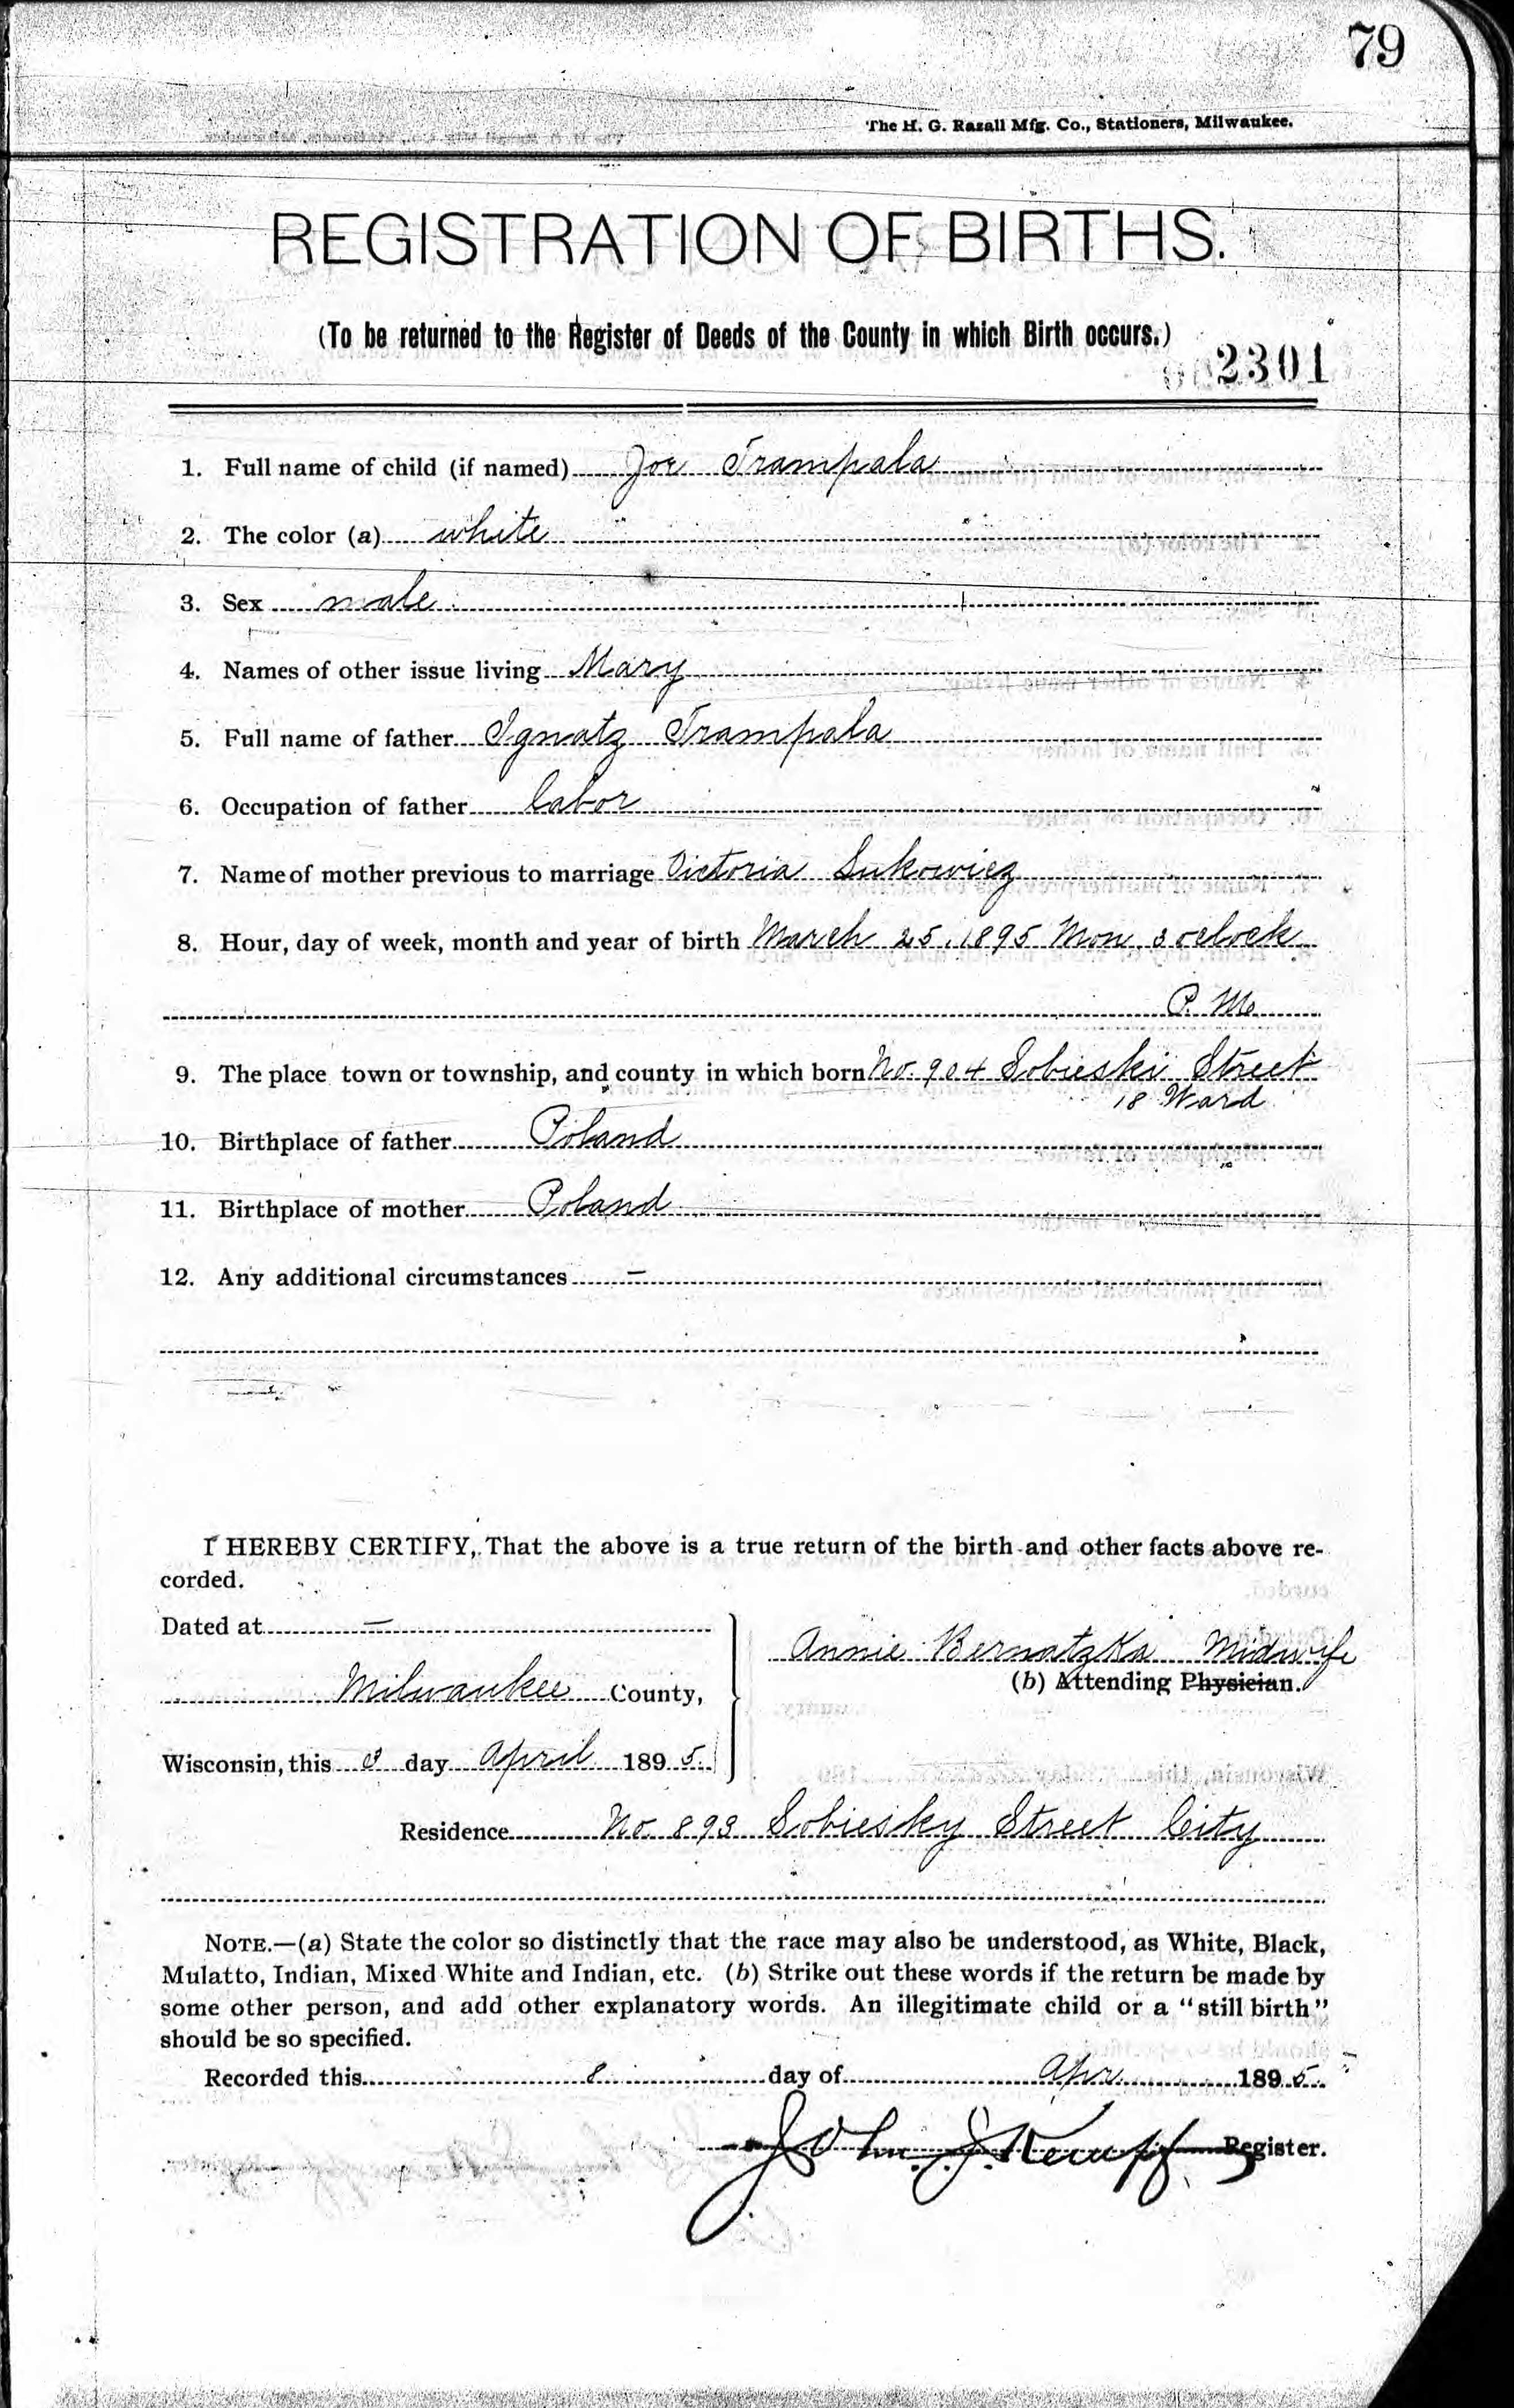 79
The H. G. Razall Mfg. Co., Stationers, Milwaukee.
REGISTRATION OF BIRTHS.
(To be returned to the Register of Deeds of the County in which Birth occurs.)
2301
1. Full name of child (if named) Joe Trampala
2. The color (a) white
3. Sex male
4. Names of other issue living Mary
5. Full name of father Ignatz Trampala
6. Occupation of father labor
7. Name of mother previous to marriage Victoria Sukowicz
8. Hour, day of week, month and year of birth March 25, 1895 Mon. 3 oclock
P. M.
9. The place town or township, and county in which born No. 904 Sobieski Street
18 Ward
10. Birthplace of father Poland
11. Birthplace of mother Poland
12. Any additional circumstances –
I HEREBY CERTIFY, That the above is a true return of the birth and other facts above re-
corded.
Dated at –
Annie Bernatzka Midwife
(b) Attending Physician.
Milwaukee County,
Wisconsin, this 3 day April 1895.
Residence No. 893 Sobiesky Street City
NOTE.—(a) State the color so distinctly that the race may also be understood, as White, Black,
Mulatto, Indian, Mixed White and Indian, etc. (b) Strike out these words if the return be made by
some other person, and add other explanatory words. An illegitimate child or a "still birth"
should be so specified.
Recorded this 8 day of Apr 1895.
John J. Kempf Register.